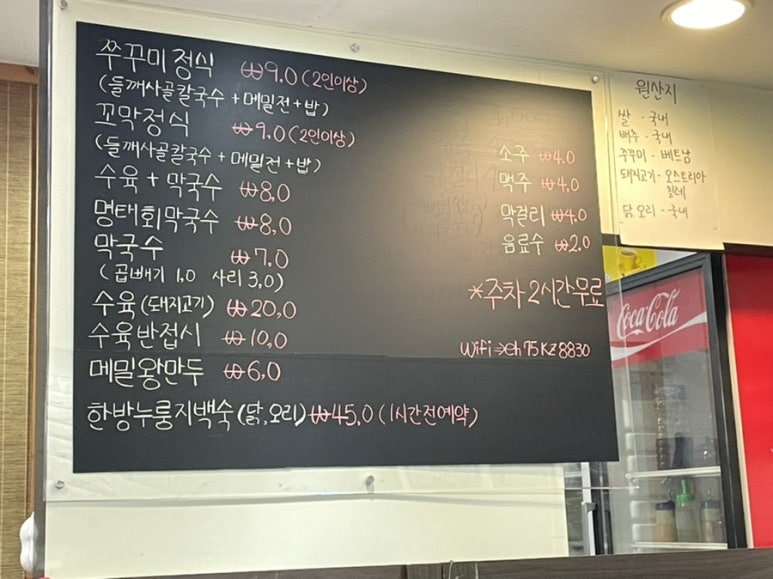 쭈꾸미정식 ₩9.0 (2인이상)
(들깨사골칼국수+메밀전+밥)
꼬막정식 ₩9.0 (2인이상)
(들깨사골칼국수+메밀전+밥)
수육+막국수 ₩8.0
명태회막국수 ₩8.0
막국수 ₩7.0
(곱빼기 1.0 사리 3.0)
수육(돼지고기) ₩20.0
수육반접시 ₩10.0
메밀왕만두 ₩6.0
한방누룽지백숙(닭,오리) ₩45.0 (1시간전예약)
소주 ₩4.0
맥주 ₩4.0
막걸리 ₩4.0
음료수 ₩2.0
*주차2시간무료
Wifi → Ch75KZ8830
원산지
쌀 - 국내
배추 - 국내
쭈꾸미 - 베트남
돼지고기 - 오스트리아
칠레
닭 오리 - 국내
Coca-Cola